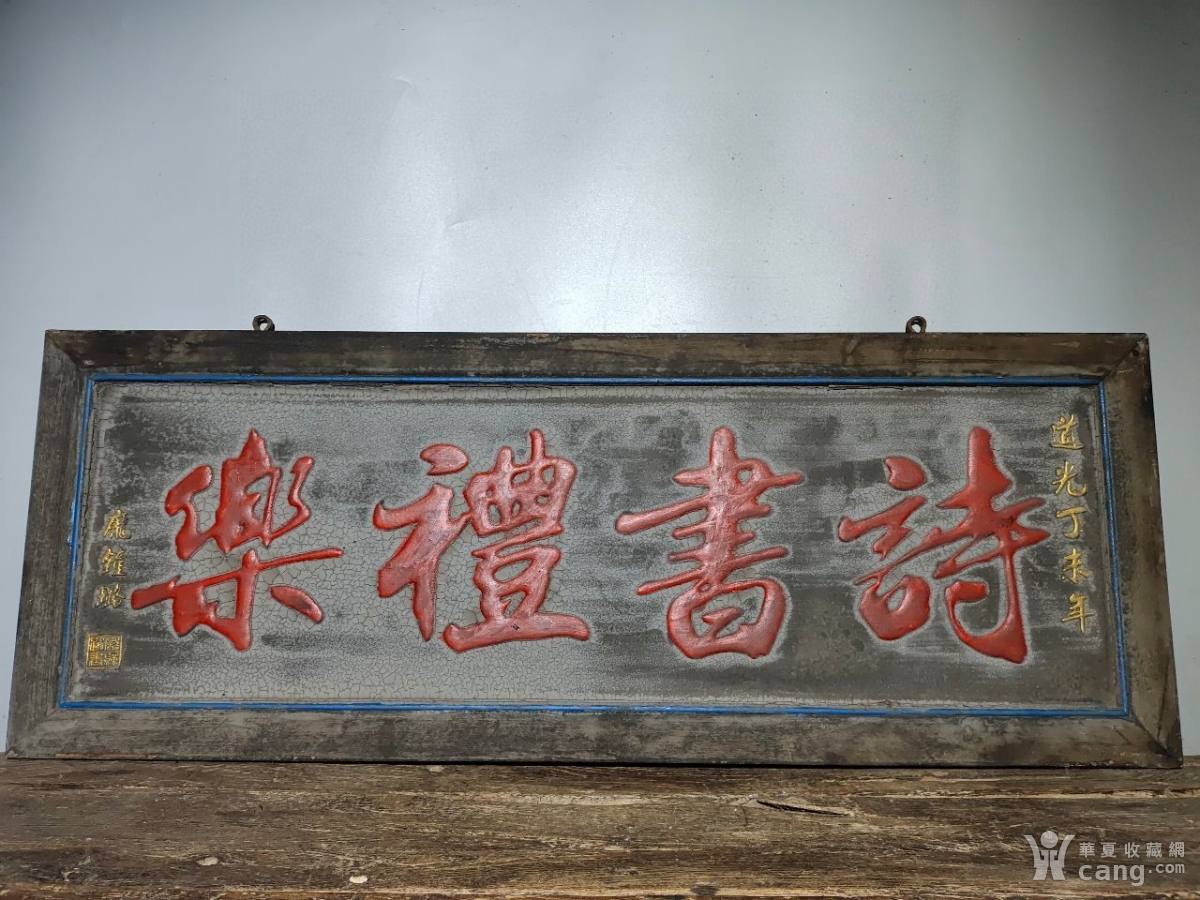 道光丁未年
詩書禮樂
龐鍾璐
華夏收藏網
cang.com